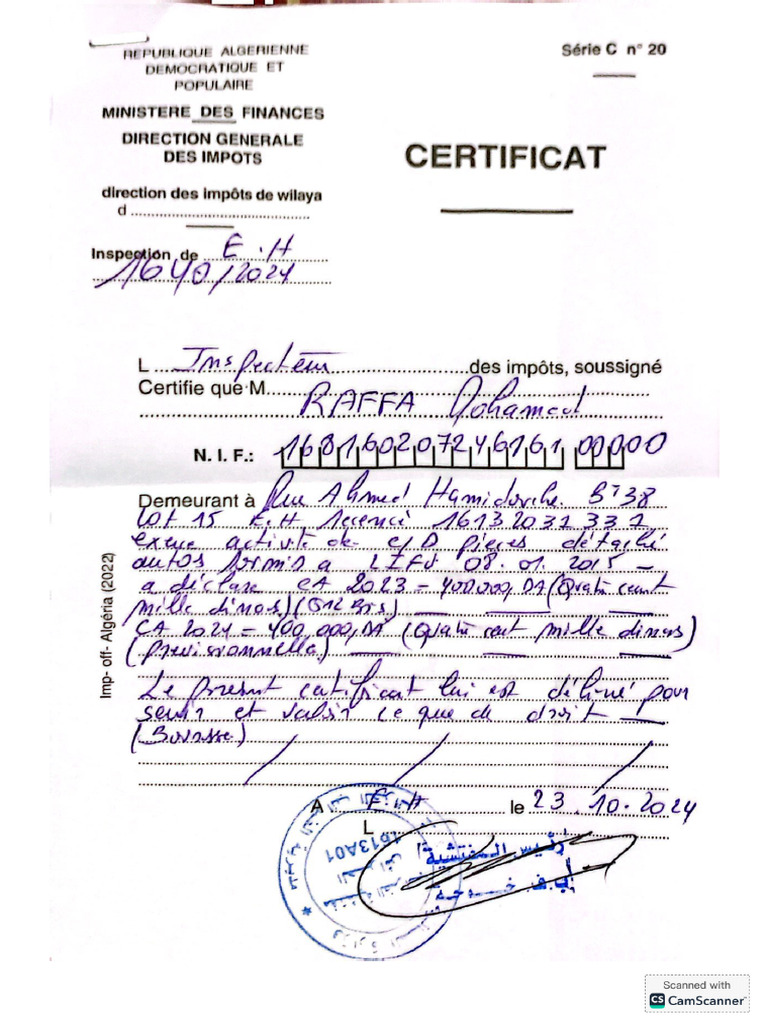 REPUBLIQUE ALGERIENNE
DEMOCRATIQUE ET
POPULAIRE
MINISTERE DES FINANCES
DIRECTION GENERALE
DES IMPOTS
direction des impôts de wilaya
d
Inspection de E.H
1640/2024
Série C n° 20
CERTIFICAT
L Inspecteur des impôts, soussigné
Certifie que M
RAFFA Mohamed
N. I. F.: 168160207246161 00000
Demeurant à Rue Ahmed Hamidouche B^t 38
Lot 15 E.H 16132032331
exerce activité de C/D pièces détaché
autos 08.01.2015 –
a déclaré CA 2023 = 400.000,DA (Quatre cent
mille dinars) (G12 Bis)
CA 2024 = 400,000,DA (Quatre cent mille dinars)
(previsionnelle)
Le present certificat lui est délivré pour
servir et valoir ce que de droit
Imp- off- Algéria (2022)
A E.H le 23.10.2024
L
رئيس المفتشية
1613A01
Scanned with
CS CamScanner